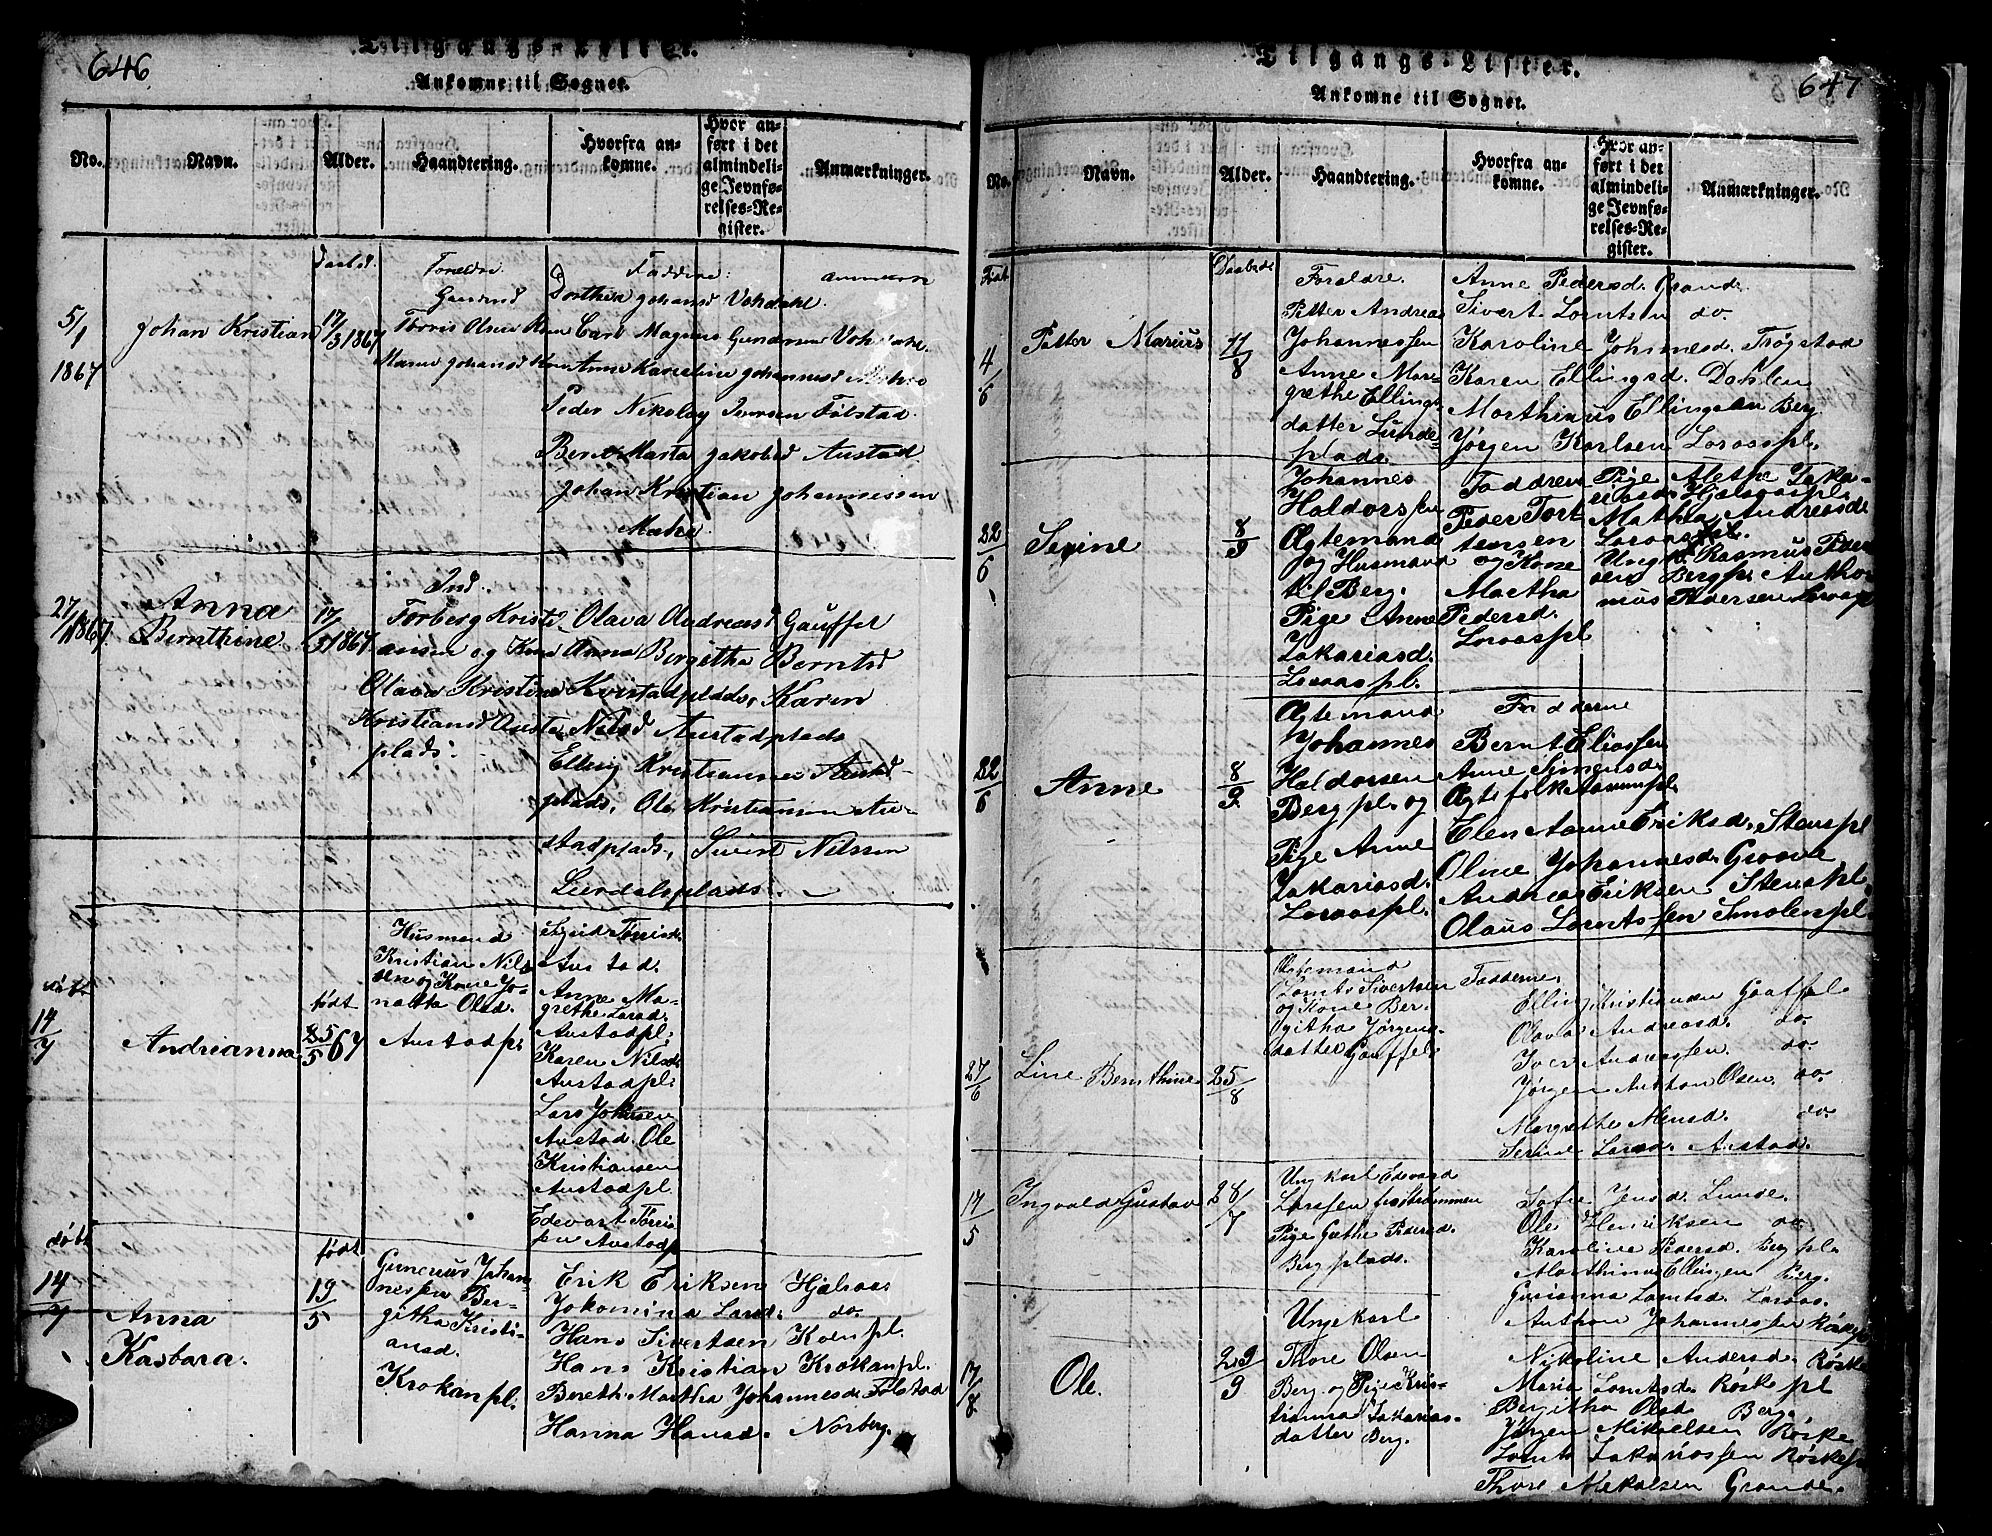 646
Tilgangs-Lister.
Ankomne til Sognet.
No.
Navn.
Alder.
Haandtering.
Hvorfra an-
komne.
Hvor an-
ført i det
almindeli-
ge Jevnfø-
relses-Re-
gister.
Anmærkninger.
5/1
1867
Johan Kristian
17/3 1867
Dorthea Johansd Vohdahl
Torris Olsen
Carl Magnus Gundersen
Anne Karoline Johannesd
Peder Nikolay Iversen Følstad
Berit Marta Jakobsd Austad
Johan Kristian Johannessen
27/1 1867
Anna
Bernthine
17/3 1867
Torberg Kristi-
ansen og Kone
Olava Kristine
Kristiansd Austa
plads.
Olava Andreasd Gauffel
Anna Bergitha Berntsd
Kvistadplads, Karen
Nilsd Austadplads
Elling Kristiansen Austad-
plads, Ole Kristiansen Au-
stadplads, Sivert Nilssen
Leerdalsplads.
døbt
14/7
Andrianna
født
25/5 67
Husmand
Kristian Nils
sen og Kone Jo-
natta Olsd.
Austadpl
Austad.
Anne Ma-
grethe Larsd.
Austadpl.
Karen Nilsd.
Austadpl.
Lars Johnsen
Austad. Ole
Kristiansen
Austadpl.
Edevart
sen Austadpl
døbt
14/7
Anna
Kasbara.
født
19/5
Gunerius Johan-
nessen Ber-
githa Kristi-
ansd.
Krokanpl.
Erik Eriksen Hjelsaas
Jakomina Larsd. do.
Hans Sivertsen
Hans Kristian Krokanpl.
Bereth Martha Johannesd. Følstad
Hanna Hansd. Norberg.
647
Tilgangs-Lister.
Ankomne til Sognet.
No.
Navn.
Alder.
Haandtering.
Hvorfra an-
komne.
Hvor an-
ført i det
almindeli-
ge Jevnfø-
relses-Re-
gister.
Anmærkninger.
Født
Døbt
Foraldre.
4/6
Petter Marius
11/8
Petter Andreas
Johannessen
Anne Mar-
grethe Ellings
datter Lunde-
plads.
Anne Pedersd. Grande.
Sivert Lorntsen do.
Karoline Johansd. Trøgstad
Karen Ellingsd. Dahlen
Morthinus Ellingsen Berg
Jørgen Karlsen Loraaspl.
22/6
Serine
8/9
Johannes
Haldorssen
Ægtemand
og Husmand
til Berg.
Pige Anne
Zakariasd.
Loraaspl.
Faddren
Peder Tort
tensen
og Kone
Martha
Pedersd.
Loraaspl
Pige Alethe Zaka-
riasd. Hjelsaaspl.
Matha Andreasd
Loraaspl.
Ungk. Rasmus Peder
sen Bergpl. Antho
nius Pedersen Loraaspl
22/6
Anne
8/9
Ægtemand
Johannes
Haldorsen
Bergpl. og
Pige Anne
Zakariasd.
Loraaspl.
Fadderne
Bernt Eliassen
Anne Simonsd.
Ægtefolk
Elen Anne Eriksd. Stenspl
Oline Johannesd. Graave
Andreas Eriksen Stenspl.
Olaus Lorntssen Smolenpl.
27/6
Line Bernthine
25/8
Ægtemand
Lornts Sivertsen
og Kone Ber-
githa Jørgens-
datter Gauffel.
Fadderne.
Elling Kristiansen Gauffel
Olava Andreasd. do.
Iver Andreassen. do.
Jørgen Anthon Olsen. do.
Margrethe Monsd. do.
Serine Larsd. Austad.
17/5
Ingvald Gustav
28/7
Ungkarl Edevard
Larssen
Pige Grethe Pedersd.
Bergplads.
Sofie Jensd. Lunde.
Ole Henriksen do.
Karoline Pedersd. Bergpl.
Marthinus Ellingsen Berg.
Gurianna Lorntsd. Loraas.
17/8
Ole.
29/9
Ungekarl
Thore Olsen
Berg og Pige Kris-
tianna Zakarias-
datter Berg.
Anthon Johannessen
Nikoline Andersd. Røske
Maria Lorntsd. Røske pl
Bergitha Olsd Berg.
Jørgen Mikkelsen Røske
Lornts Zakariassen Røskepl
Thore Mikalsen Grande.